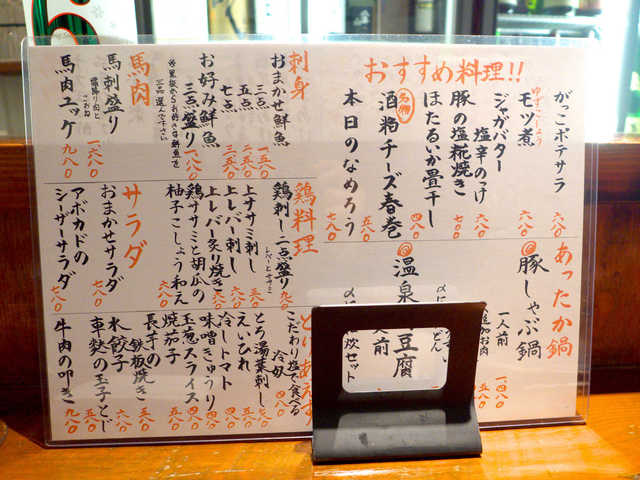 おすすめ料理!!
がっこポテサラ 六八〇
ゆずこしょう
モツ煮 六八〇
ジャガバター
塩辛のっけ 六八〇
豚の塩糀焼き 七〇〇
ほたるいか畳干し 四八〇
名物
酒粕チーズ春巻 五八〇
本日のなめろう 七八〇
刺身
おまかせ鮮魚
三点 一五八〇
五点 二五八〇
七点 三五八〇
お好み鮮魚
三点盛り 一八〇〇
馬肉
馬刺盛り 一六八〇
馬肉ユッケ 九八〇
あったか鍋
豚しゃぶ鍋
一人前 一四八〇
追加お肉
温泉
豆腐
鶏料理
鶏刺し二点盛り 九八〇
レバーとササミ
上ササミ刺し
上レバー刺し
上レバー炙り焼き
鶏ササミと胡瓜の
柚子こしょう和え
サラダ
おまかせサラダ 七八〇
アボカドの
シーザーサラダ 七八〇
こだわり塩で食べる
冷奴 四八〇
とろ湯葉刺し
えいひれ
冷しトマト
味噌きゅうり
玉葱スライス
焼茄子
長芋の
鉄板焼き 五八〇
水餃子 六八〇
車麩の玉子とじ
牛肉の叩き 九八〇